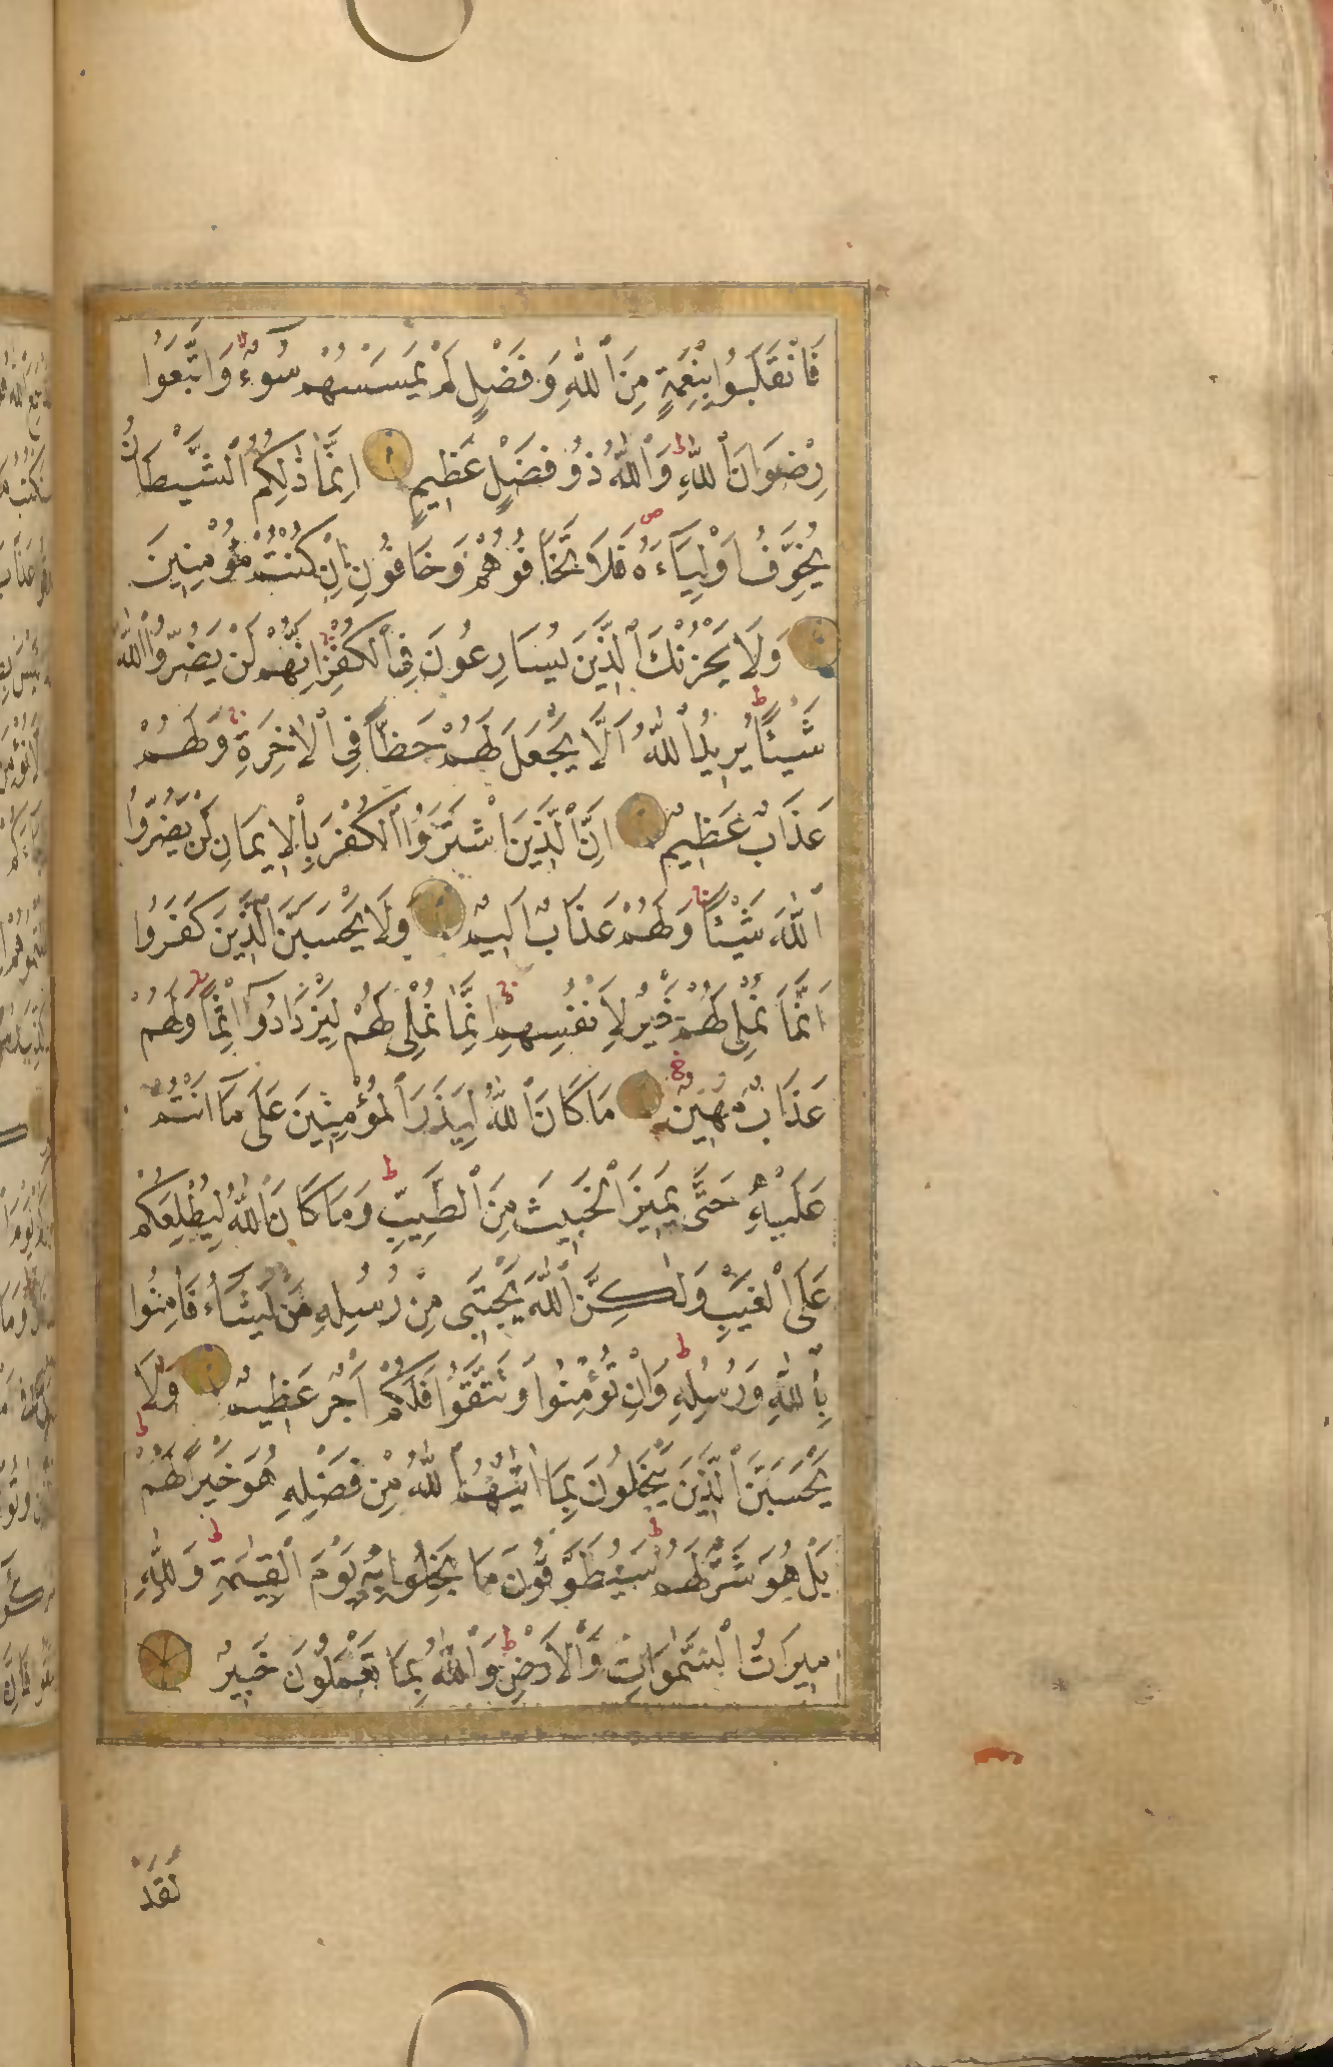 فَانْقَلَبُوا بِنِعْمَةٍ مِنَ ٱللّٰهِ وَفَضْلٍ لَمْ يَمْسَسْهُمْ سُوٓءٌ وَاتَّبَعُوا
رِضْوَانَ ٱللّٰهِ ط وَٱللّٰهُ ذُو فَضْلٍ عَظِيمٍ اِنَّمَا ذٰلِكُمُ ٱلشَّيْطَانُ
يُخَوِّفُ اَوْلِيَآءَهُ ص فَلَا تَخَافُوهُمْ وَخَافُونِ اِنْ كُنْتُمْ مُؤْمِنِينَ
وَلَا يَحْزُنْكَ ٱلَّذِينَ يُسَارِعُونَ فِي ٱلْكُفْرِ ج اِنَّهُمْ لَنْ يَضُرُّوا ٱللّٰهَ
شَيْئًا ط يُرِيدُ ٱللّٰهُ اَلَّا يَجْعَلَ لَهُمْ حَظًّا فِي ٱلْاٰخِرَةِ ج وَلَهُمْ
عَذَابٌ عَظِيمٌ اِنَّ ٱلَّذِينَ اشْتَرَوُا ٱلْكُفْرَ بِٱلْاِيمَانِ لَنْ يَضُرُّوا
ٱللّٰهَ شَيْئًا ج وَلَهُمْ عَذَابٌ اَلِيمٌ وَلَا يَحْسَبَنَّ ٱلَّذِينَ كَفَرُوا
اَنَّمَا نُمْلِي لَهُمْ خَيْرٌ لِاَنْفُسِهِمْ ج اِنَّمَا نُمْلِي لَهُمْ لِيَزْدَادُوٓا اِثْمًا ج وَلَهُمْ
عَذَابٌ مُهِينٌ مَا كَانَ ٱللّٰهُ لِيَذَرَ ٱلْمُؤْمِنِينَ عَلَى مَآ اَنْتُمْ
عَلَيْهِ حَتَّى يَمِيزَ ٱلْخَبِيثَ مِنَ ٱلطَّيِّبِ ط وَمَا كَانَ ٱللّٰهُ لِيُطْلِعَكُمْ
عَلَى ٱلْغَيْبِ وَلٰكِنَّ ٱللّٰهَ يَجْتَبِي مِنْ رُسُلِهِ مَنْ يَشَآءُ فَاٰمِنُوا
بِٱللّٰهِ وَرُسُلِهِ ط وَاِنْ تُؤْمِنُوا وَتَتَّقُوا فَلَكُمْ اَجْرٌ عَظِيمٌ وَلَا
يَحْسَبَنَّ ٱلَّذِينَ يَبْخَلُونَ بِمَآ اٰتٰيهُمُ ٱللّٰهُ مِنْ فَضْلِهِ هُوَ خَيْرًا لَهُمْ ط
بَلْ هُوَ شَرٌّ لَهُمْ ط سَيُطَوَّقُونَ مَا بَخِلُوا بِهِ يَوْمَ ٱلْقِيٰمَةِ ط وَلِلّٰهِ
مِيرَاثُ ٱلسَّمٰوَاتِ وَٱلْاَرْضِ ط وَٱللّٰهُ بِمَا تَعْمَلُونَ خَبِيرٌ
لَقَدْ